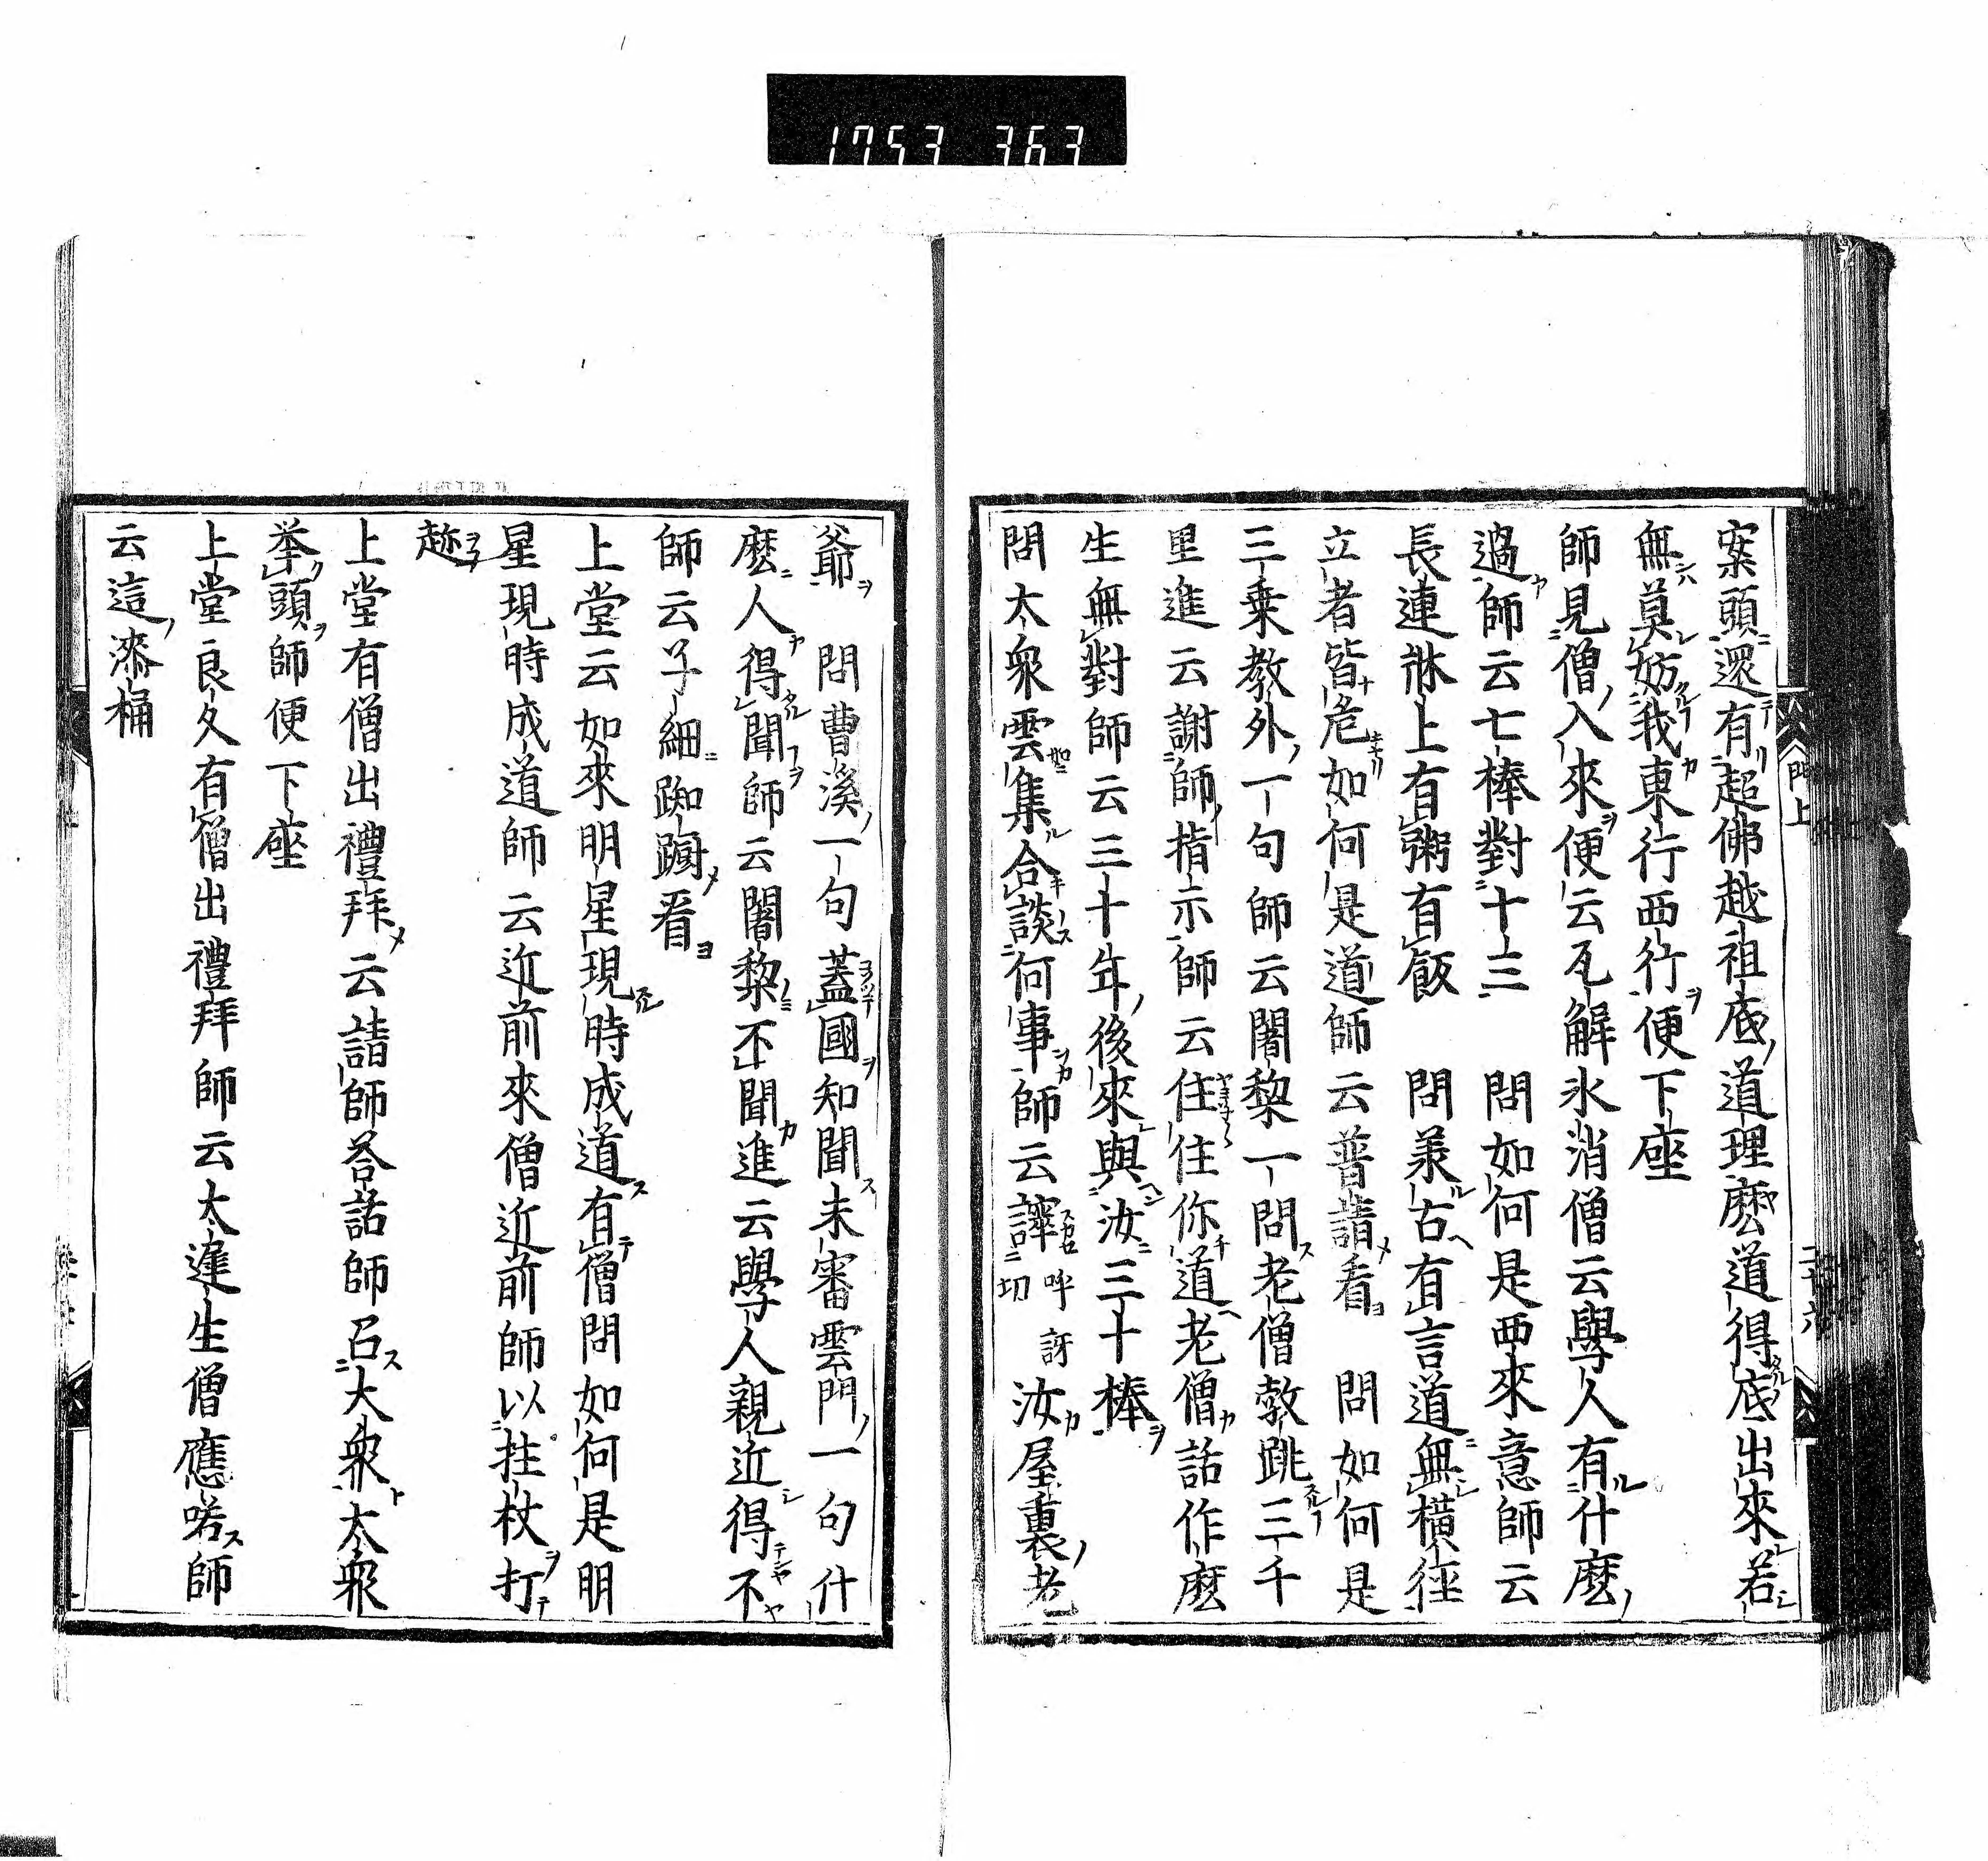 1753 363
門上
二十六
案頭還有超佛越祖底道理麽道得底出來若
無莫妨我東行西行便下座
師見僧入來便云瓦解氷消僧云學人有什麽
過師云七棒對十三　問如何是西來意師云
長連牀上有粥有飯　問兼古有言道無橫徑
立者皆危如何是道師云普請看　問如何是
三乘教外一句師云闍黎一問老僧𨁝跳三千
里進云謝師指示師云住住你道老僧話作麽
生無對師云三十年後來與汝三十棒
問大衆雲集合談何事師云譁呼訝切汝屋裏老
爺　問曹溪一句蓋國知聞未審雲門一句什
麽人得聞師云闍黎不聞進云學人親近得不
師云子細踟蹰看
上堂云如來明星現時成道有僧問如何是明
星現時成道師云近前來僧近前師以拄杖打
趂
上堂有僧出禮拜云請師荅話師召大衆大衆
举頭師便下座
上堂良久有僧出禮拜師云太遲生僧應喏師
云這漆桶